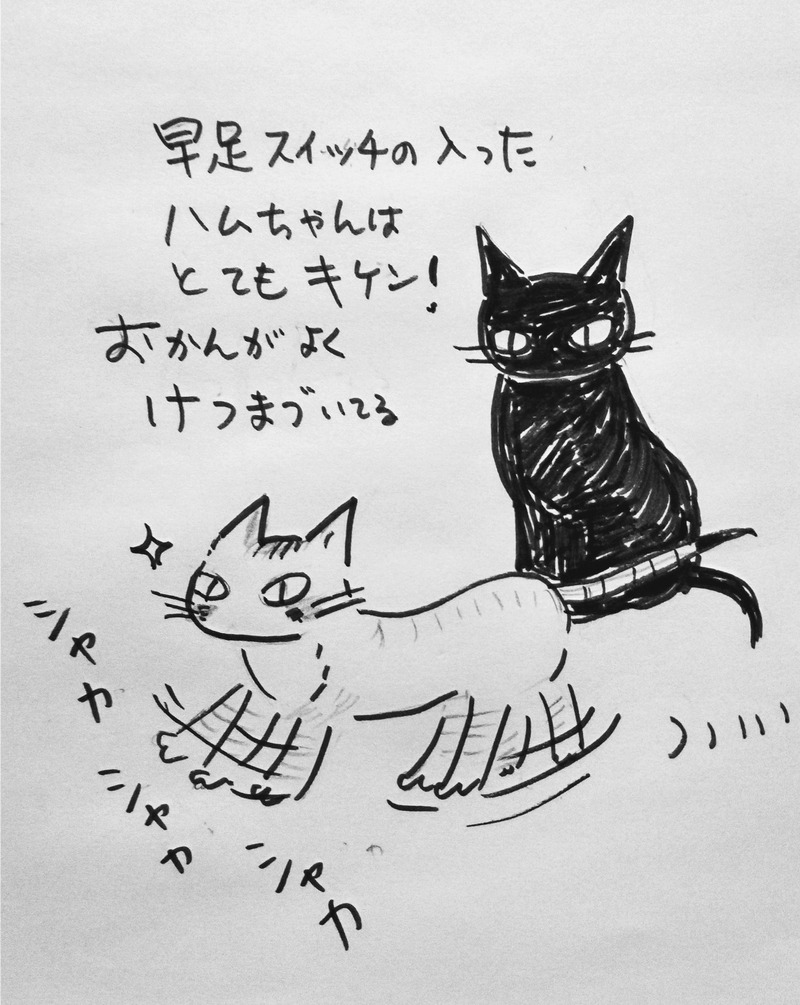 早足スイッチの入った
ハムちゃんは
とてもキケン!
おかんがよく
けつまづいてる
シャカ
シャカ
シャカ